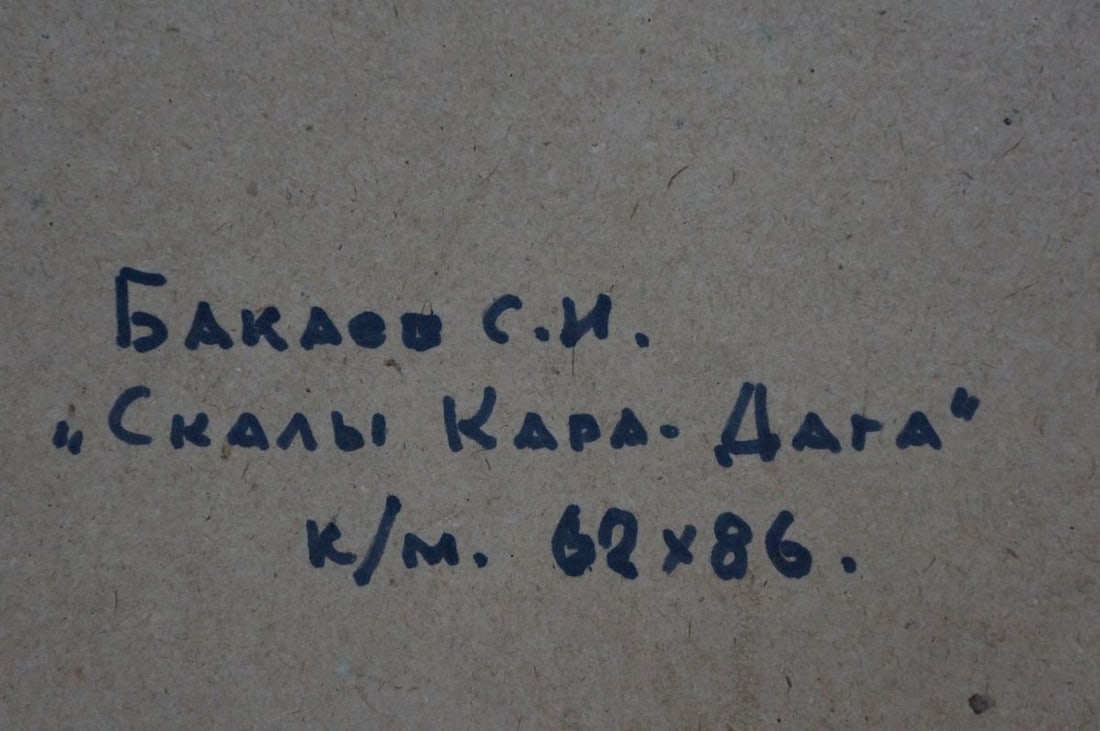 Бакаев С.И.
„Скалы Кара-Дага"
к/м. 62х86.